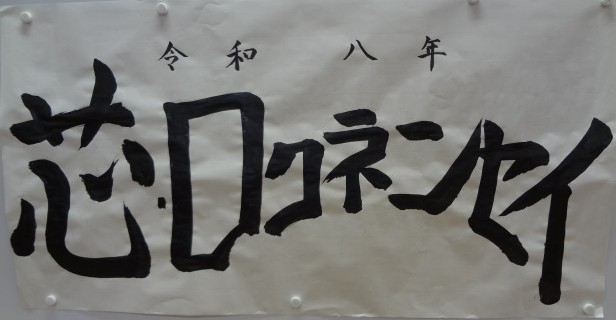 令和八年
芯ロクネンセイ